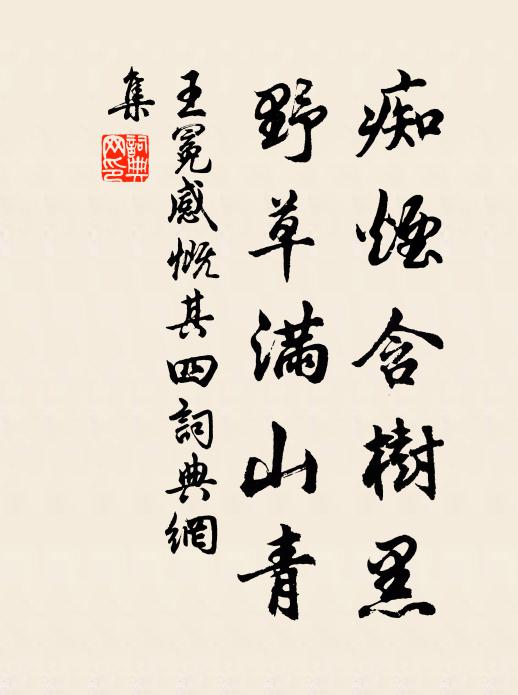 痴煙含樹黑
野草滿山青
王冕感慨其四詞典網
集
詞典網印